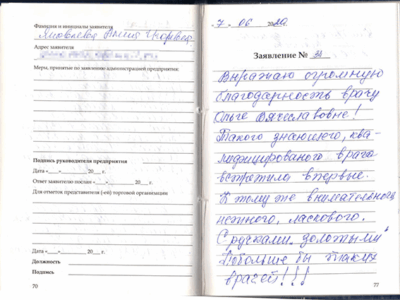 Фамилия и инициалы заявителя
Яковлева
Адрес заявителя
Меры, принятые по заявлению администрацией предприятия:
Подпись руководителя предприятия
Дата «___»________ 20___ г.
Ответ заявителю послан «___»________ 20___ г.
Для отметок представителя (-ей) торговой организации:
Дата «___»________ 20___ г.
Должность
Подпись
70
7. 06
Заявление №
Выражаю огромную
благодарность врачу
Ольге Вячеславовне!
Такого знающего, ква-
лифицированого врача
встретила впервые.
К тому же внимательного
нежного, ласкового.
С руками "золотыми"
Побольше бы таких
врачей!!!